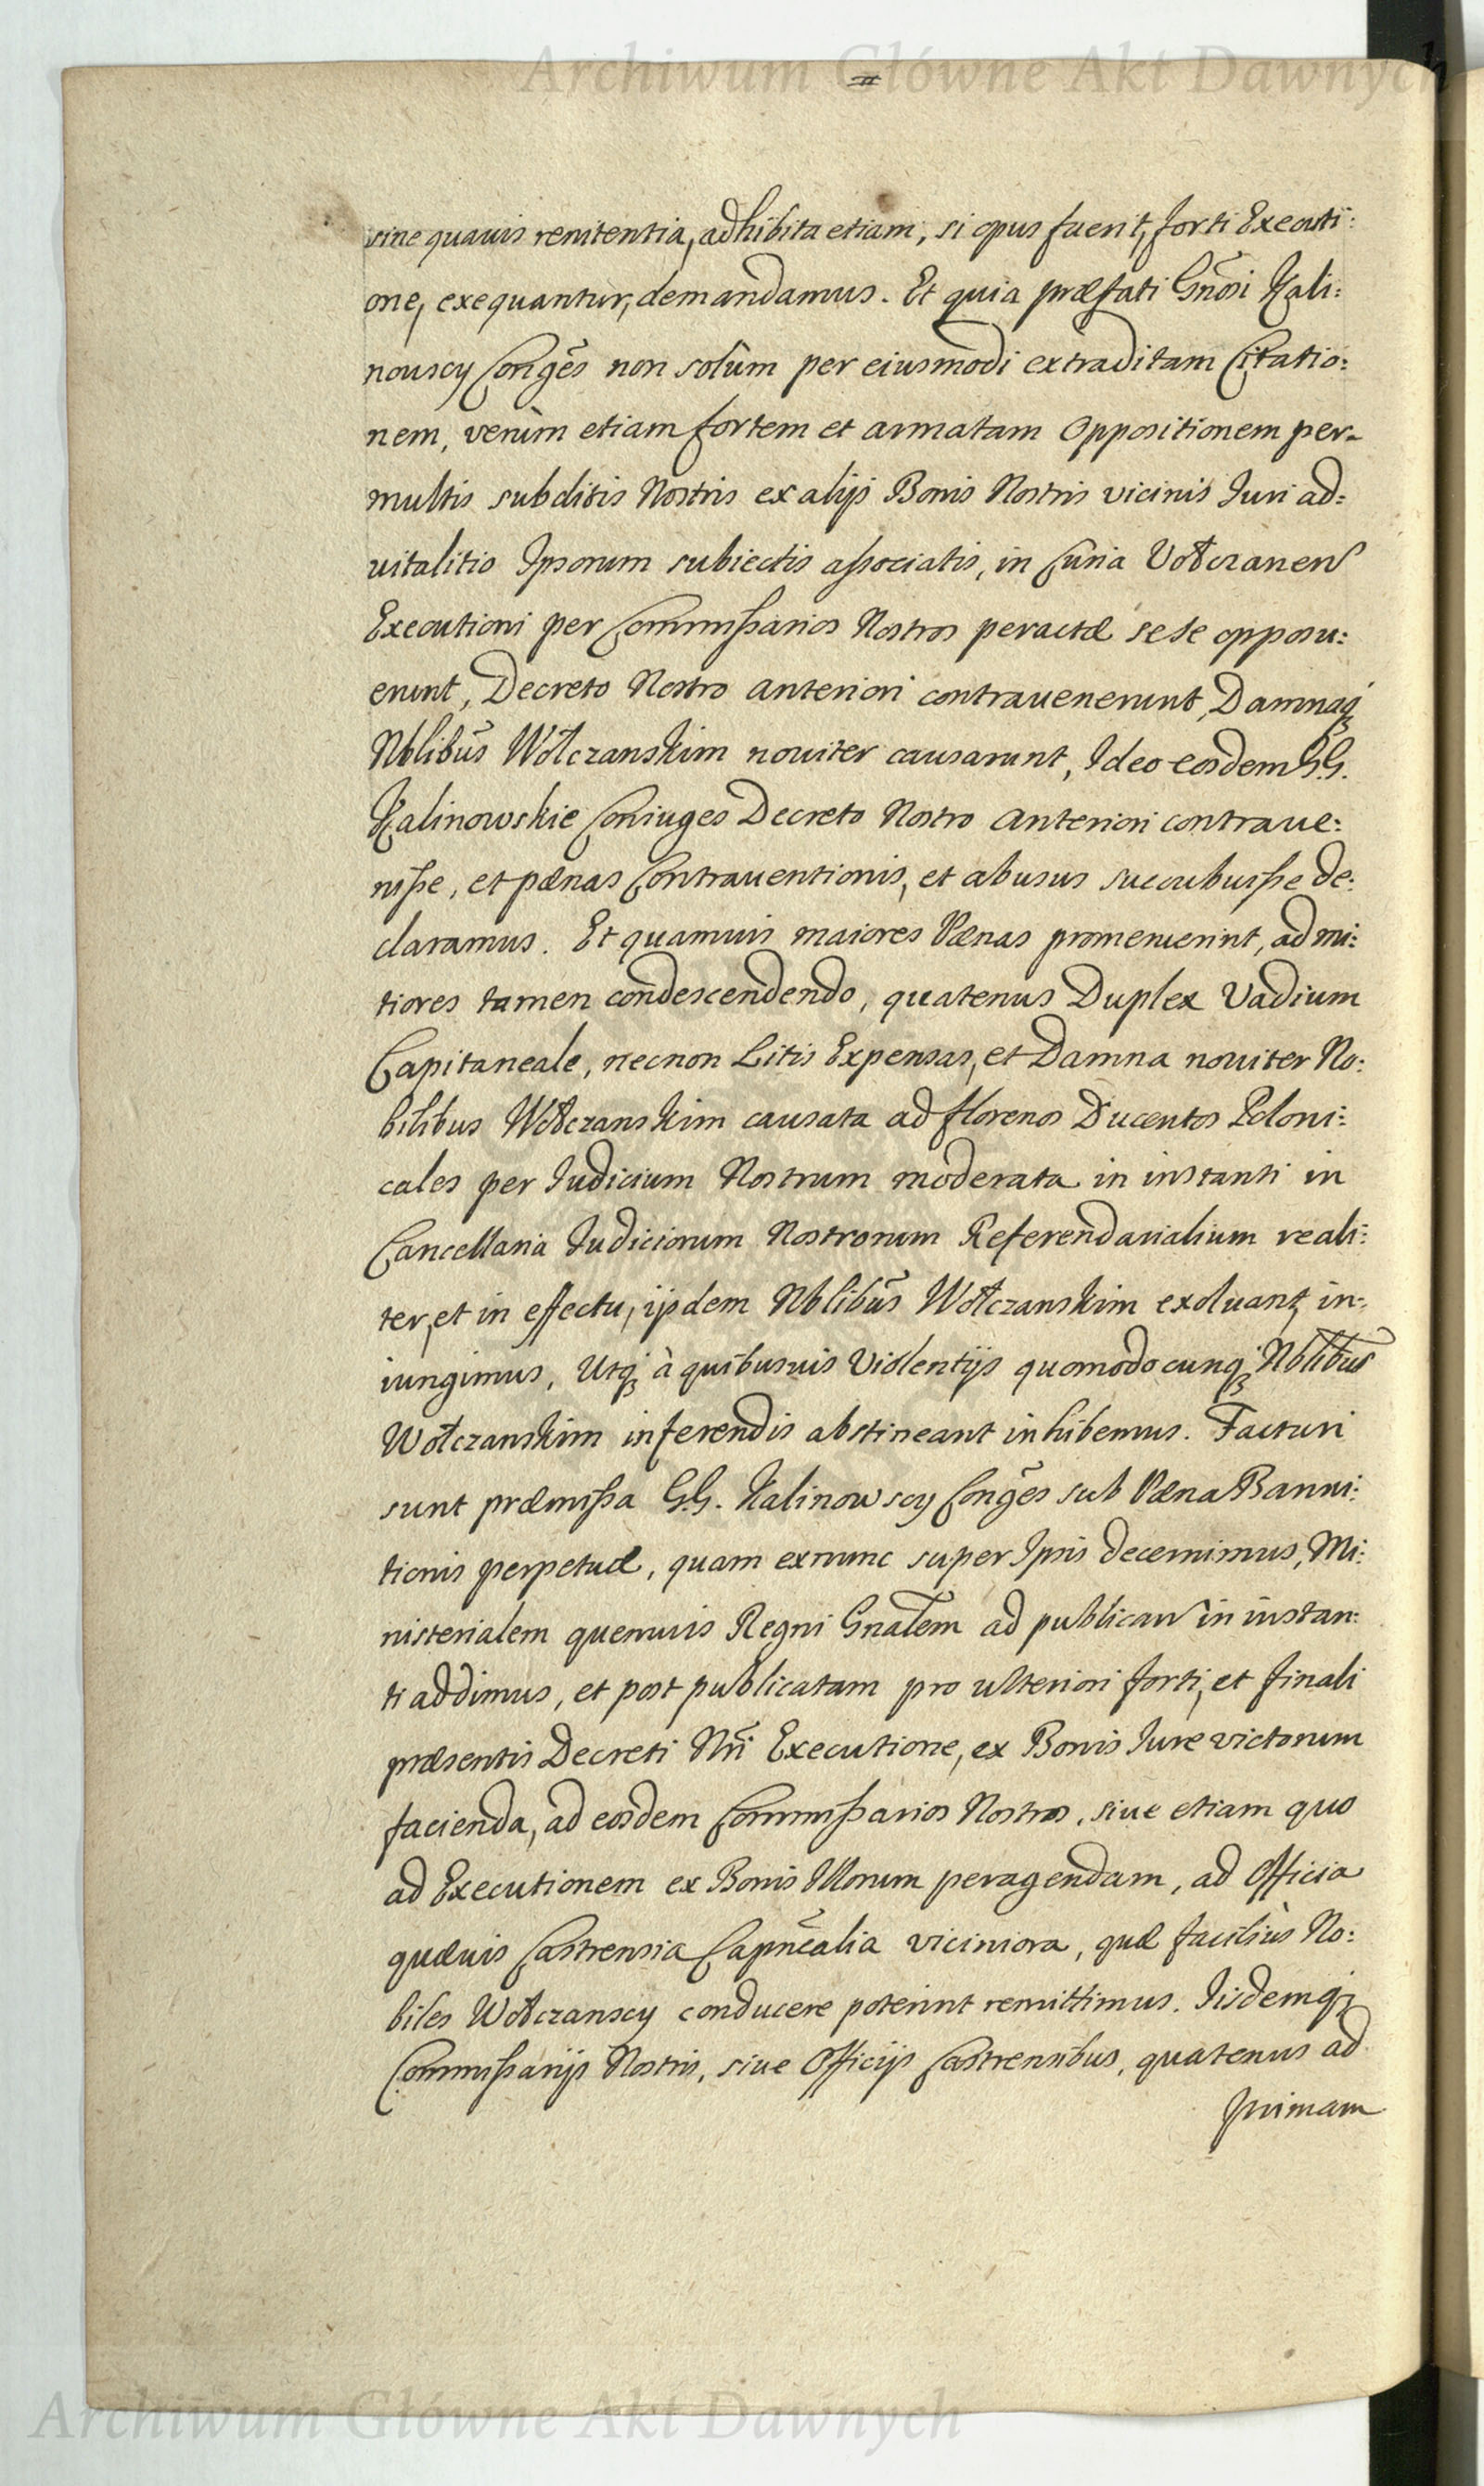 Archiwum Główne Akt Dawnych
sine quauis renitentia, adhibita etiam, si opus fuerit, forti Executi:
one, exequantur, demandamus. Et quia præfati Gnõsi Kali:
nouscy Congẽs non solùm per eiusmodi extraditam Citatio:
nem, verùm etiam fortem et armatam Oppositionem per-
multis subditis Nostris ex alijs Bonis Nostris vicinis Iuri ad:
uitalitio Ipsorum subiectis aßociatis, in Curia Wołczanen
Executioni per Commißarios Nostros peractæ sese opposu:
erunt, Decreto Nostro anteriori contrauenerunt, Damnaq
Nblibũs Wołczanskim nouiter causarunt, Ideo eosdem G.G.
Kalinowskie Coniuges Decreto Nostro Anteriori contraue:
niße, et pænas Contrauentionis, et abusus succubuiße de:
claramus. Et quamuis maiores Pænas promeruerint, ad mi:
tiores tamen condescendendo, quatenus Duplex Vadium
Capitaneale, necnon Litis Expensas, et Damna nouiter No:
bilibus Wołczanskim causata ad florenos Ducentos Poloni:
cales per Iudicium Nostrum moderata in instanti in
Cancellaria Iudiciorum Nostrorum Referendarialium reali:
ter, et in effectu, ijsdem Nblibũs Wołczanskim exoluant, in:
iungimus, Utq à quibusuis Violentijs quomodocunq Nblibus
Wołczanskim inferendis abstineant inhibemus. Facturi
sunt præmißa G.G. Kalinowscy Congẽs sub Pæna Banni:
tionis perpetuæ, quam exnunc super Ipsis decernimus, Mi:
nisterialem quemuis Regni Gnalem ad publican in instan:
ti addimus, et post publicatam pro ulteriori forti, et finali
præsentis Decreti Nri Executione, ex Bonis Iure victorum
facienda, ad eosdem Commißarios Nostros, siue etiam quo
ad Executionem ex Bonis Illorum peragendam, ad Officia
quæuis Castrensia Capnẽalia viciniora, quæ faciliùs No:
biles Wołczanscy conducere poterint remittimus. Iisdemq
Commißarijs Nostris, siue Officijs Castrensibus, quatenus ad
primam
Archiwum Główne Akt Dawnych